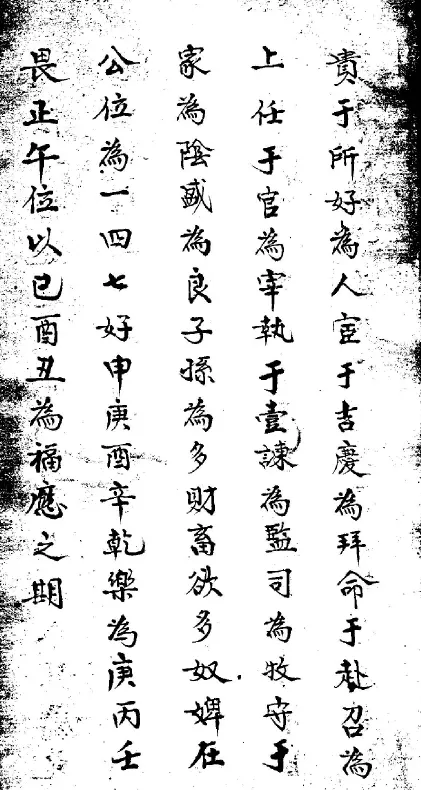 貴于所好為人宦于吉慶為拜命于赴召為
上任于官為宰執于壹諫為監司為牧守于
家為陰盛為良子孫為多財畜欲多奴婢在
公位為一四七好申庚酉辛乾樂為庚丙壬
畏正午位以巳酉丑為福應之期